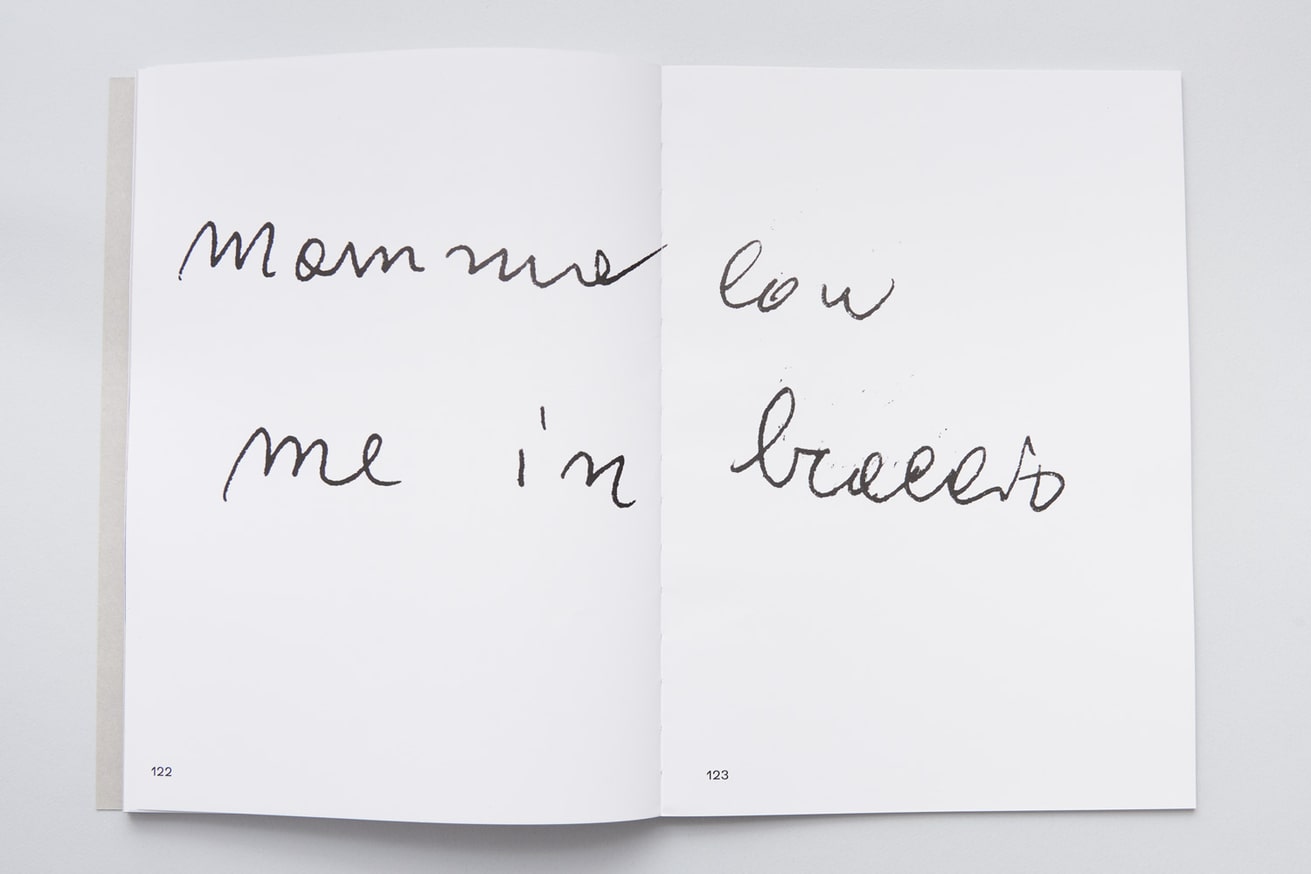 Mamma con
me in braccio
122
123